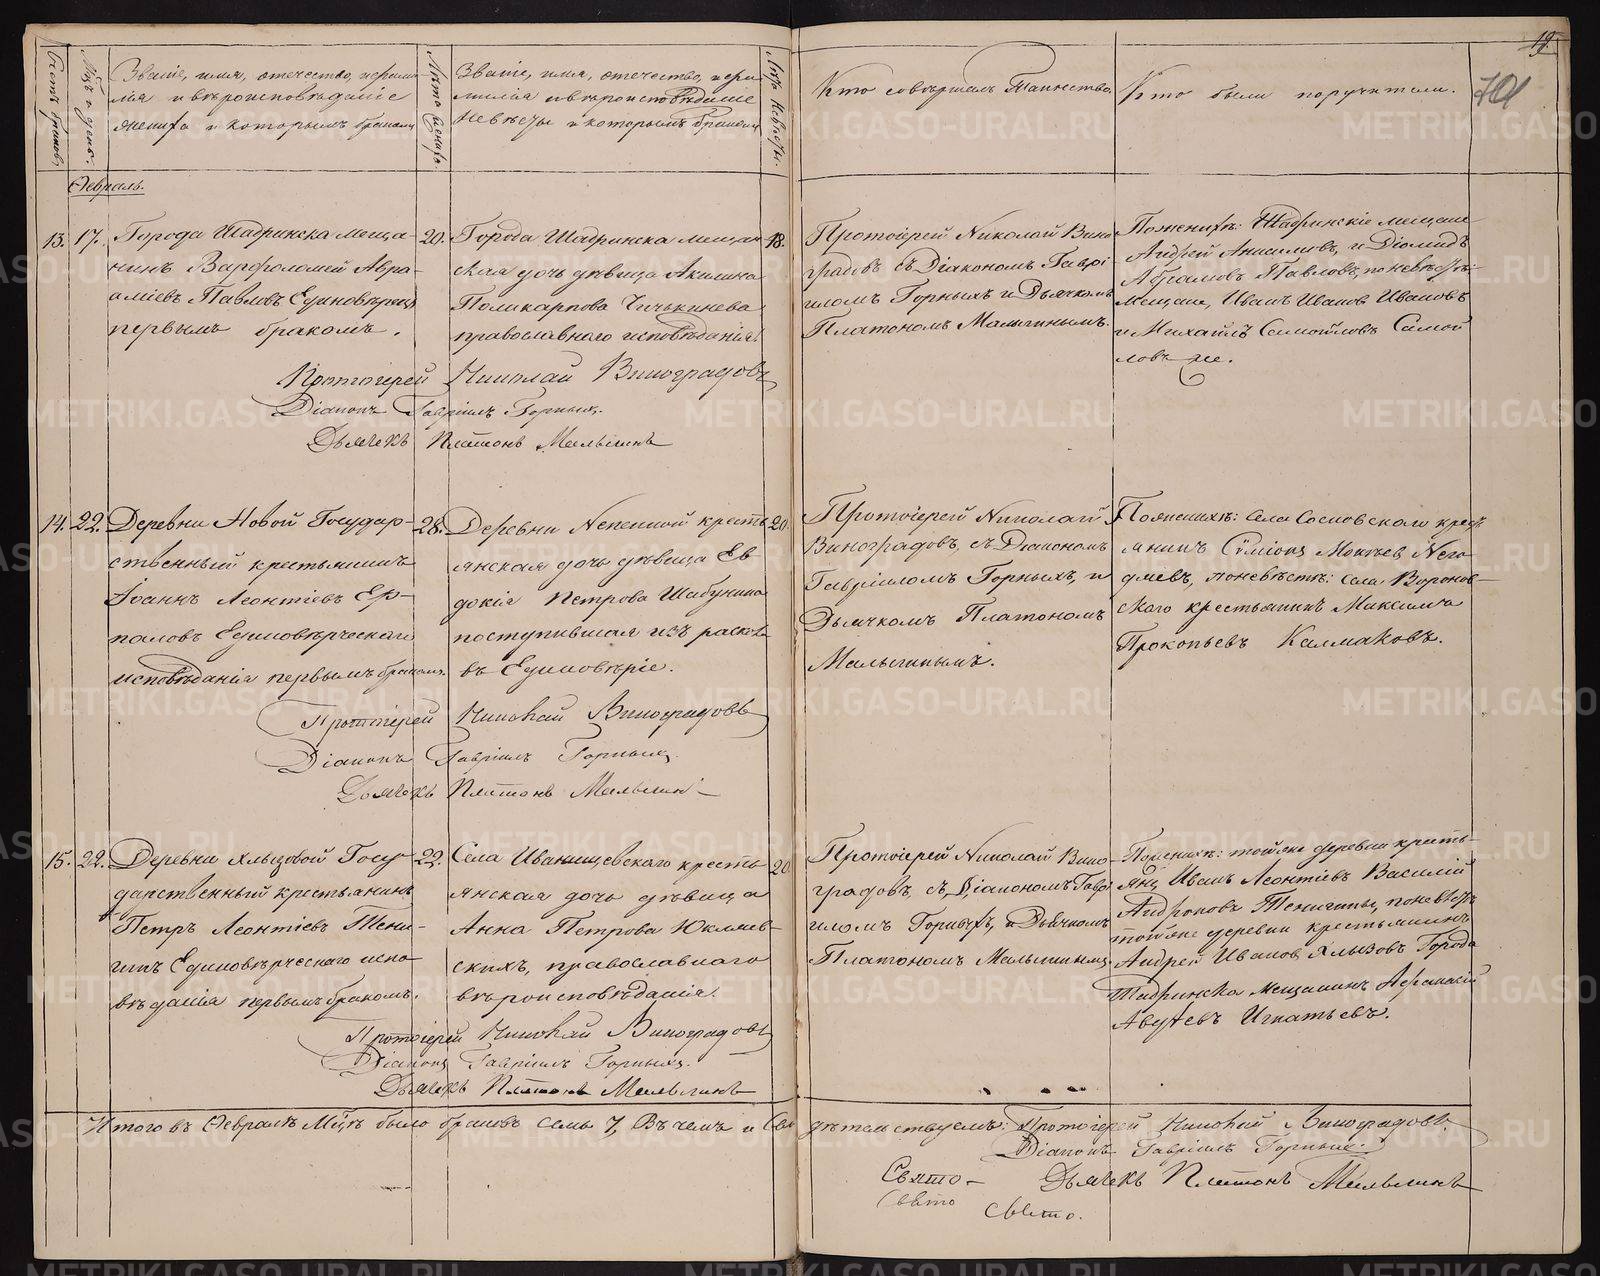 19.
701
Счетъ браковъ.
Мѣс. и день.
Званіе, имя, отчество, фами-
лія и вѣроисповѣданіе
жениха и которымъ бракомъ
Лѣта жениха.
Званіе, имя, отчество, фа-
милія и вѣроисповѣданіе
невѣсты и которымъ бракомъ
Лѣта невѣсты.
Кто совершалъ Таинство.
Кто были поручители.
Февраль.
13. 17.
Города Шадринска меща-
нинъ Варфоломей Авра-
аміевъ Павловъ Единовѣрецъ
первымъ бракомъ.
20.
Города Шадринска мещан
ская дочь дѣвица Акилина
Поликарпова Чичькинева
православнаго исповѣданія.
18.
Протоіерей Николай Вино
градовъ съ Діакономъ Гаврі
иломъ Горныхъ и Дьячкомъ
Платономъ Малыгинымъ.
По женихѣ: Шадринскіе мещане
Андрей Анисимовъ, и Діомидъ
Абрамовъ Павловъ, по невѣстѣ:
мещане, Иванъ Ивановъ Ивановъ
и Михаилъ Самойловъ Самой
ловъ же.
Протоіерей Николай Виноградовъ
Діаконъ Гавріилъ Горныхъ.
Дьячекъ Платонъ Малыгинъ
14. 22.
Деревни Новой Государ-
ственный крестьянинъ
Іоаннъ Леонтіевъ Ер-
паловъ Единовѣрческаго
исповѣданія первымъ бракомъ.
28.
Деревни Пепеиной кресть
янская дочь дѣвица Ев
докія Петрова Шабунина
поступившая изъ раскола
въ Единовѣріе.
20.
Протоіерей Николай
Виноградовъ, съ Діакономъ
Гавріиломъ Горныхъ, и
Дьячкомъ Платономъ
Малыгинымъ.
По женихѣ: села Сосновскаго крест
янинъ Симіонъ Мокіевъ Него
дяевъ, по невѣстѣ: села Воронов-
скаго крестьянинъ Максимъ
Прокопьевъ Калмаковъ.
Протоіерей Николай Виноградовъ
Діаконъ Гавріилъ Горныхъ
Дьячекъ Платонъ Малыгинъ
15. 22.
Деревни Хлызовой Госу-
дарственный крестьянинъ
Петръ Леонтіевъ Теня-
гинъ Единовѣрческаго испо
вѣданія первымъ бракомъ.
22.
Села Иванищевскаго кресть
янская дочь дѣвица
Анна Петрова Юкляев-
скихъ, православнаго
вѣроисповѣданія.
20.
Протоіерей Николай Вино-
градовъ, съ Діакономъ Гаврі
иломъ Горныхъ, и Дьячкомъ
Платономъ Малыгинымъ.
По женихѣ: той же деревни кресть-
яне Иванъ Леонтіевъ Василій
Андроновъ Тенягины, по невѣстѣ
той же деревни крестьянинъ
Андрей Ивановъ Хлызовъ Города
Шадринска мещанинъ Афанасій
Авдѣевъ Игнатьевъ.
Протоіерей Николай Виноградовъ
Діаконъ Гавріилъ Горныхъ.
Дьячекъ Платонъ Малыгинъ
Итого въ Февралѣ Мцѣ было браковъ семь 7, Въ чемъ и Сви дѣтельствуемъ: Протоіерей Николай Виноградовъ
Діаконъ Гавріилъ Горныхъ.
Дьячекъ Платонъ Малыгинъ
Свято-
свято
свято.
METRIKI.GASO-URAL.RU